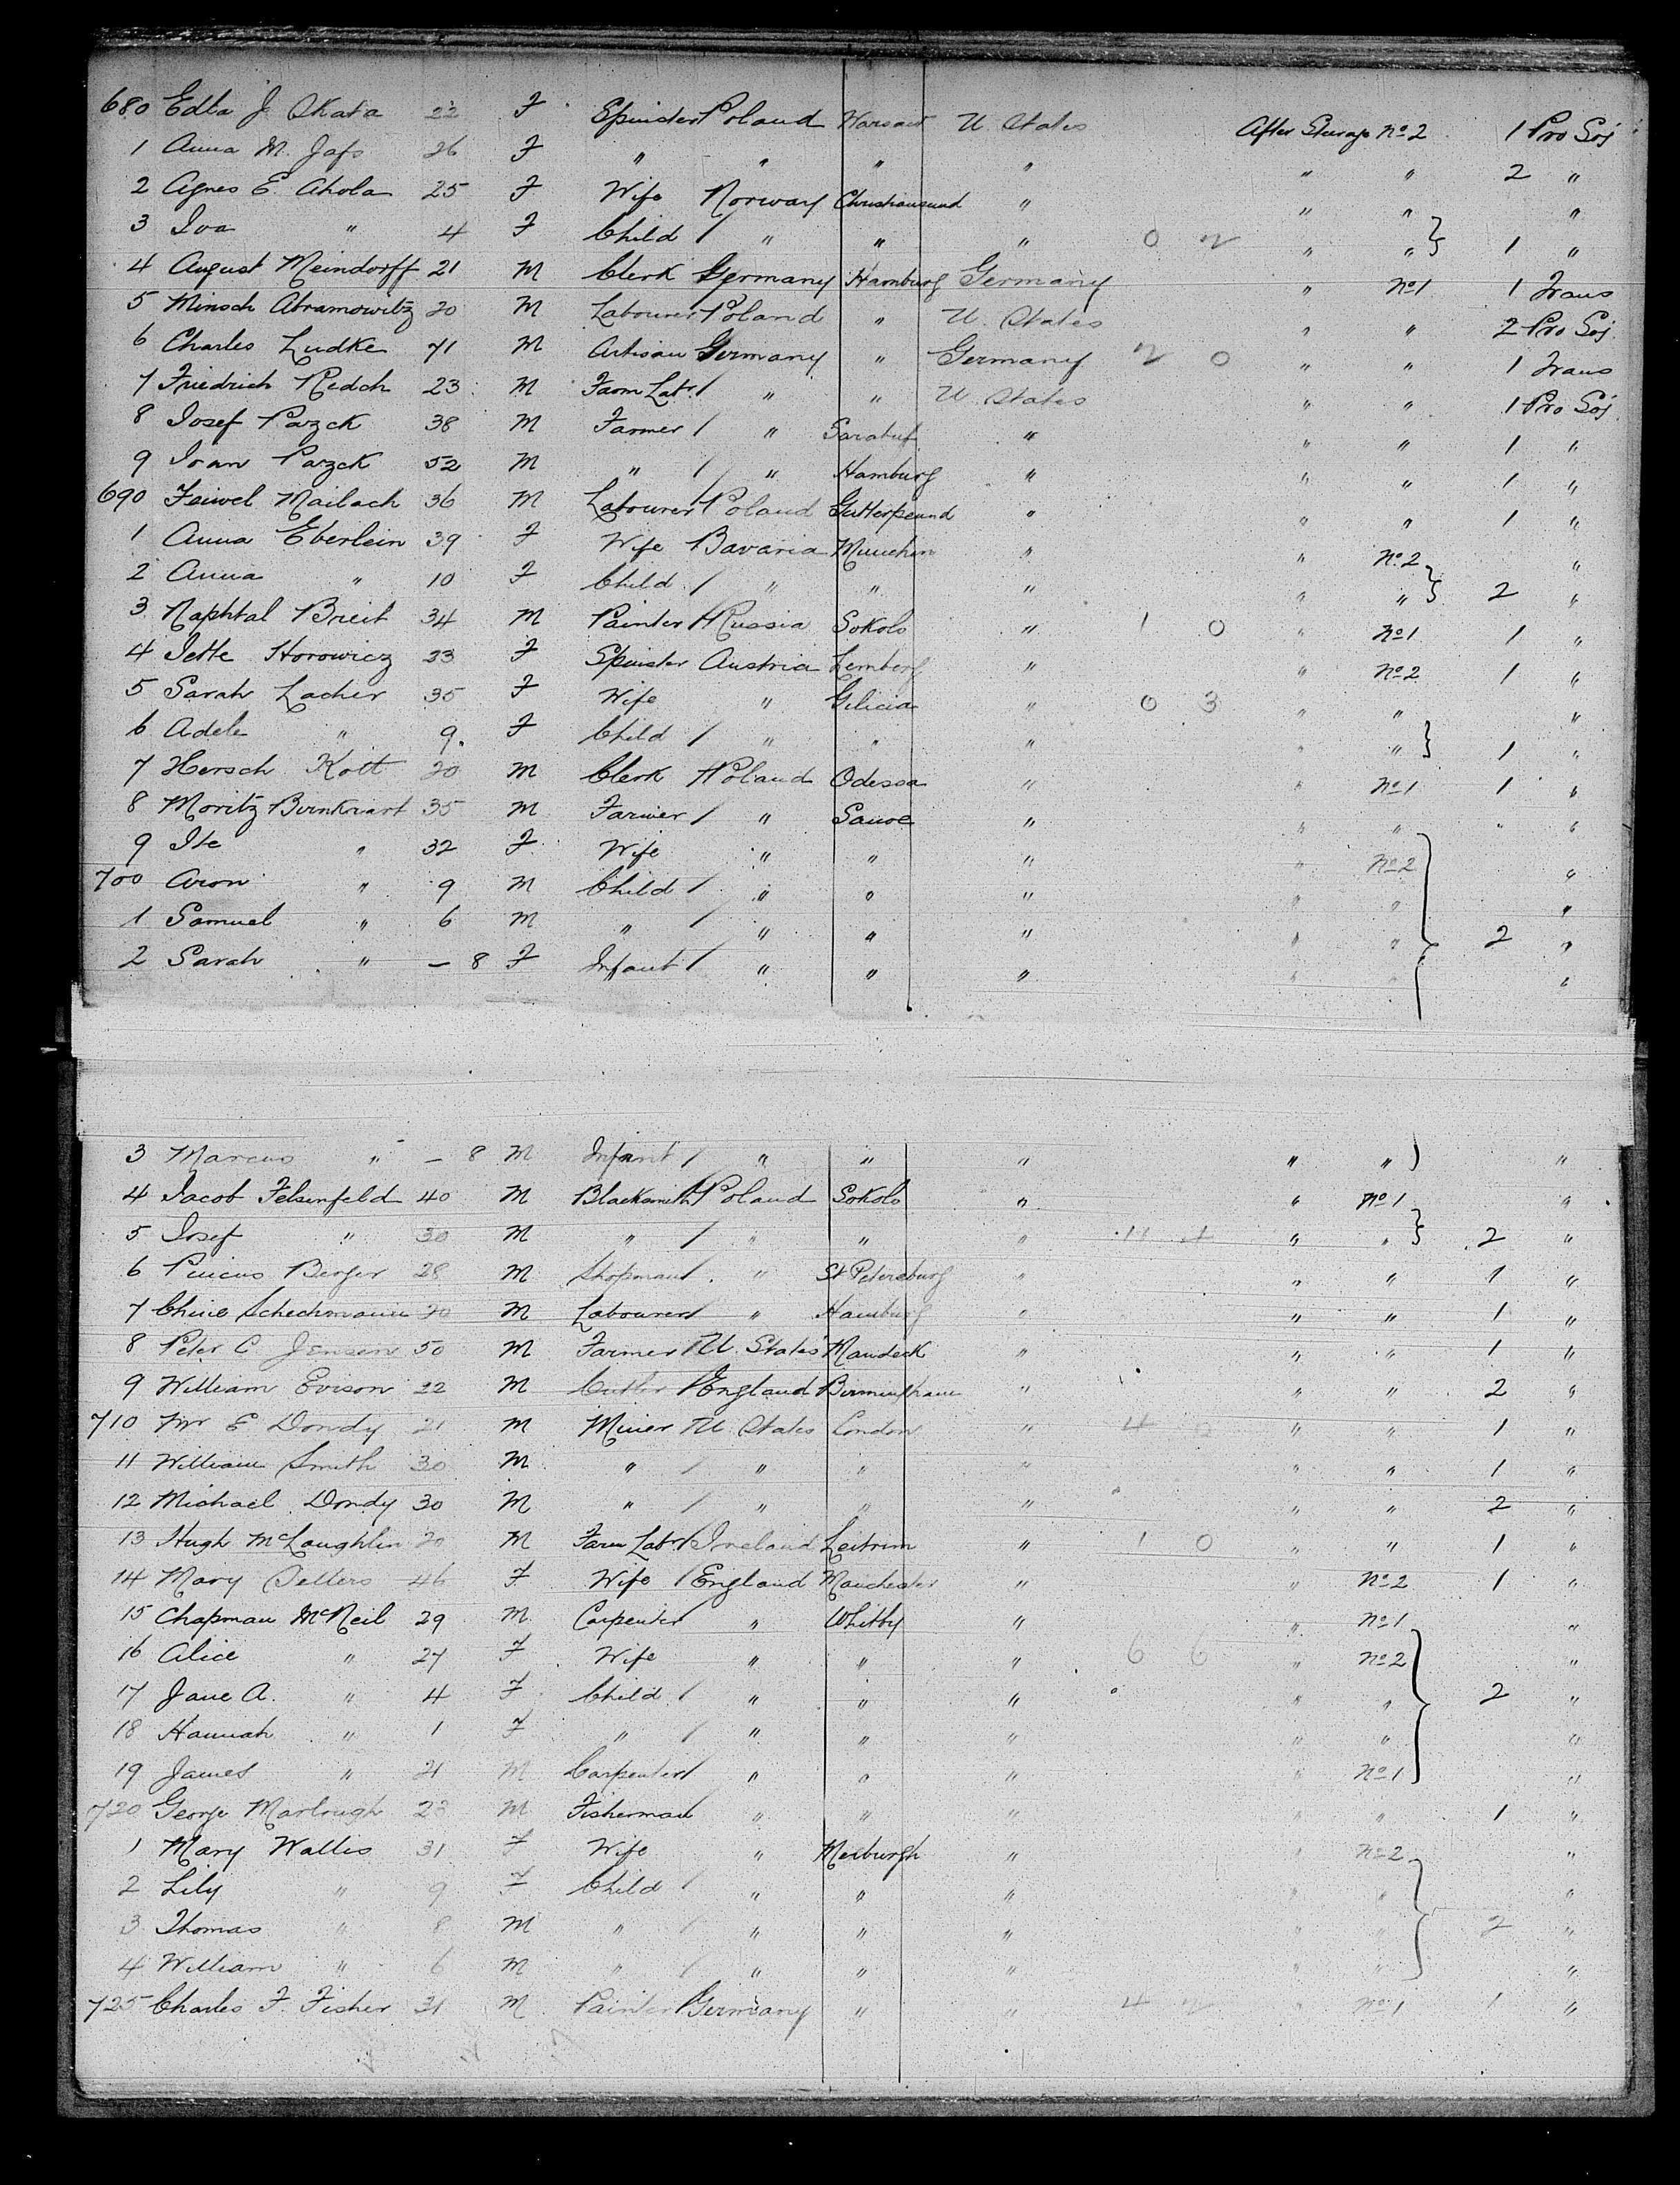 680 Edla J Skata 22 F Spinster Poland Warsaw U States After Sturage No 2 1 Pro Soj
1 Anna M. Jafs 26 F " " " " " " 2 "
2 Agnes E. Ahola 25 F Wife Norway Christiansund " " " "
3 Iva " 4 F Child / " " " 0 2 " " } 1 "
4 August Meindorff 21 M Clerk Germany Hamburg Germany " No 1 1 Trans
5 Minsch Abramowitz 20 M Labourer Poland " U. States " " 2 Pro Soj
6 Charles Ludke 71 M Artisan Germany " Germany 2 0 " " 1 Trans
7 Friedrich Redch 23 M Farm Labr / " " U. States " " 1 Pro Soj
8 Josef Parzck 38 M Farmer / " " " " 1 "
9 Joan Parzck 52 M " / " Hamburg " " " 1 "
690 Feiwel Mailach 36 M Labourer Poland " " " 1 "
1 Anna Eberlein 39 F Wife Bavaria Munchen " " No. 2 "
2 Anna " 10 F Child / " " " " " } 2 "
3 Naphtal Breit 34 M Painter / Russia Sokolo " 1 0 " No 1 1 "
4 Jette Horowicz 23 F Spinster Austria Lemberg " " No 2 1 "
5 Sarah Lacher 35 F Wife " Gilicia " 0 3 " " "
6 Adele " 9. F Child / " " " " " } 1 "
7 Hersch Kott 20 M Clerk / Poland Odessa " " No 1 1 "
8 Moritz Birnkrart 35 M Farmer / " " " " " "
9 Ite " 32 F Wife " " " " No 2 "
700 Aron " 9 M Child / " " " " " "
1 Samuel " 6 M " / " " " " " 2 "
2 Sarah " – 8 F Infant / " " " " " "
3 Marcus " – 8 M Infant / " " " " " ) "
4 Jacob Felsenfeld 40 M Blacksmith Poland Sokolo " " No 1 "
5 Josef " 30 M " / " " " " " } 2 "
6 Pincus Berger 28 M Shopman / " St Petersburg " " " 1 "
7 Schechmann 20 M Labourer / " Hamburg " " " 1 "
8 Peter C Jensen 50 M Farmer / U. States Mandeck " " " 1 "
9 William Evison 22 M Cutler / England Birmingham " " " 2 "
710 Wm E Dondy 21 M Miner / U. States London " 4 " " 1 "
11 William Smith 30 M " / " " " " " 1 "
12 Michael Dondy 30 M " / " " " " " 2 "
13 Hugh McLaughlin 20 M Farm Labr / Ireland Leitrim " 1 0 " " 1 "
14 Mary Sellers 46 F Wife / England Manchester " " No 2 1 "
15 Chapman McNeil 29 M Carpenter / " Whitby " " No 1 "
16 Alice " 27 F Wife " " " 6 6 " No 2 "
17 Jane A. " 4 F Child / " " " " " 2 "
18 Hannah " 1 F " / " " " " " "
19 James " 21 M Carpenter / " " " " No 1 "
720 George Marlough 23 M Fisherman / " " " " " 1 "
1 Mary Wallis 31 F Wife " Mexburgh " " No 2 "
2 Lily " 9 F Child / " " " " " "
3 Thomas " 8 M " / " " " " " 2 "
4 William " 6 M " / " " " " " "
725 Charles F. Fisher 31 M Painter / Germany " " 4 2 " No 1 1 "